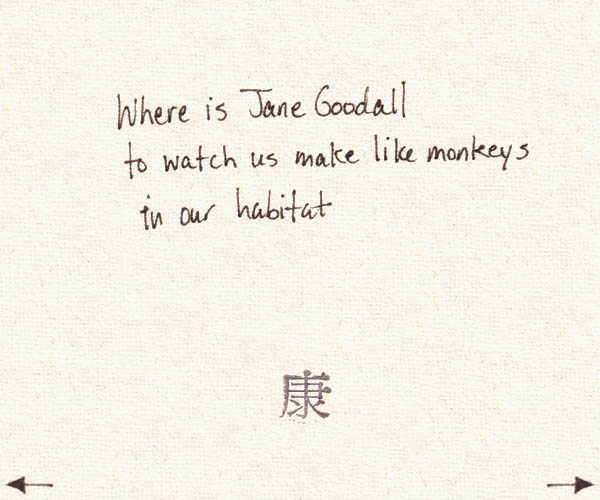 Where is Jane Goodall
to watch us make like monkeys
in our habitat
康